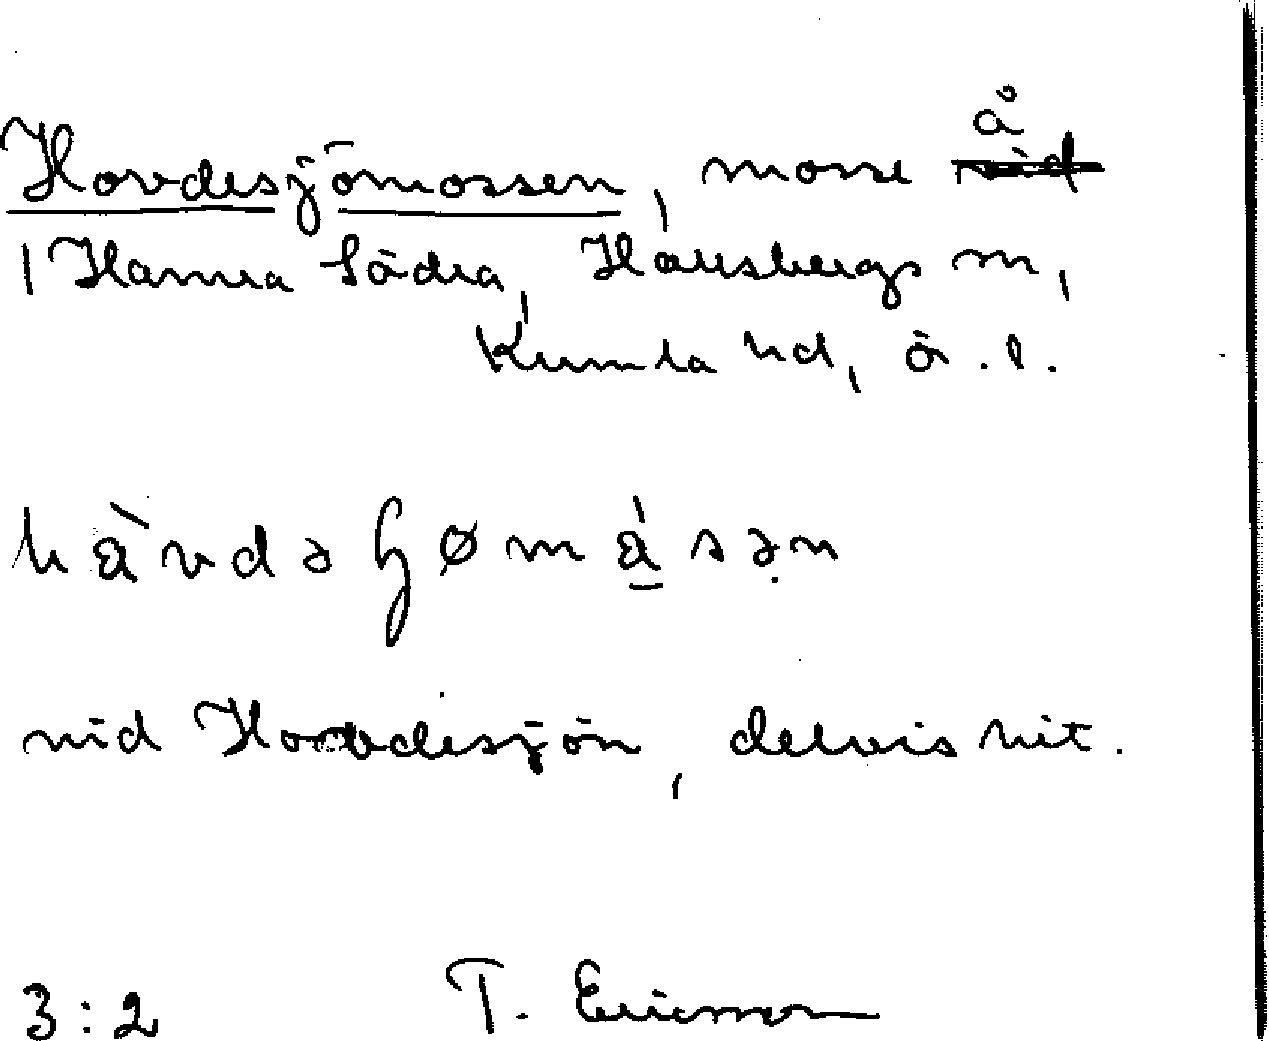 Hovdesjömossen, mosse å
Hamra Södra, Hallsbergs sn,
Kumla hd, ö.l.
hå̀vdəʃømǻ̱sən
vid Hovdesjön, delvis hit.
3:2 T. Ericsson